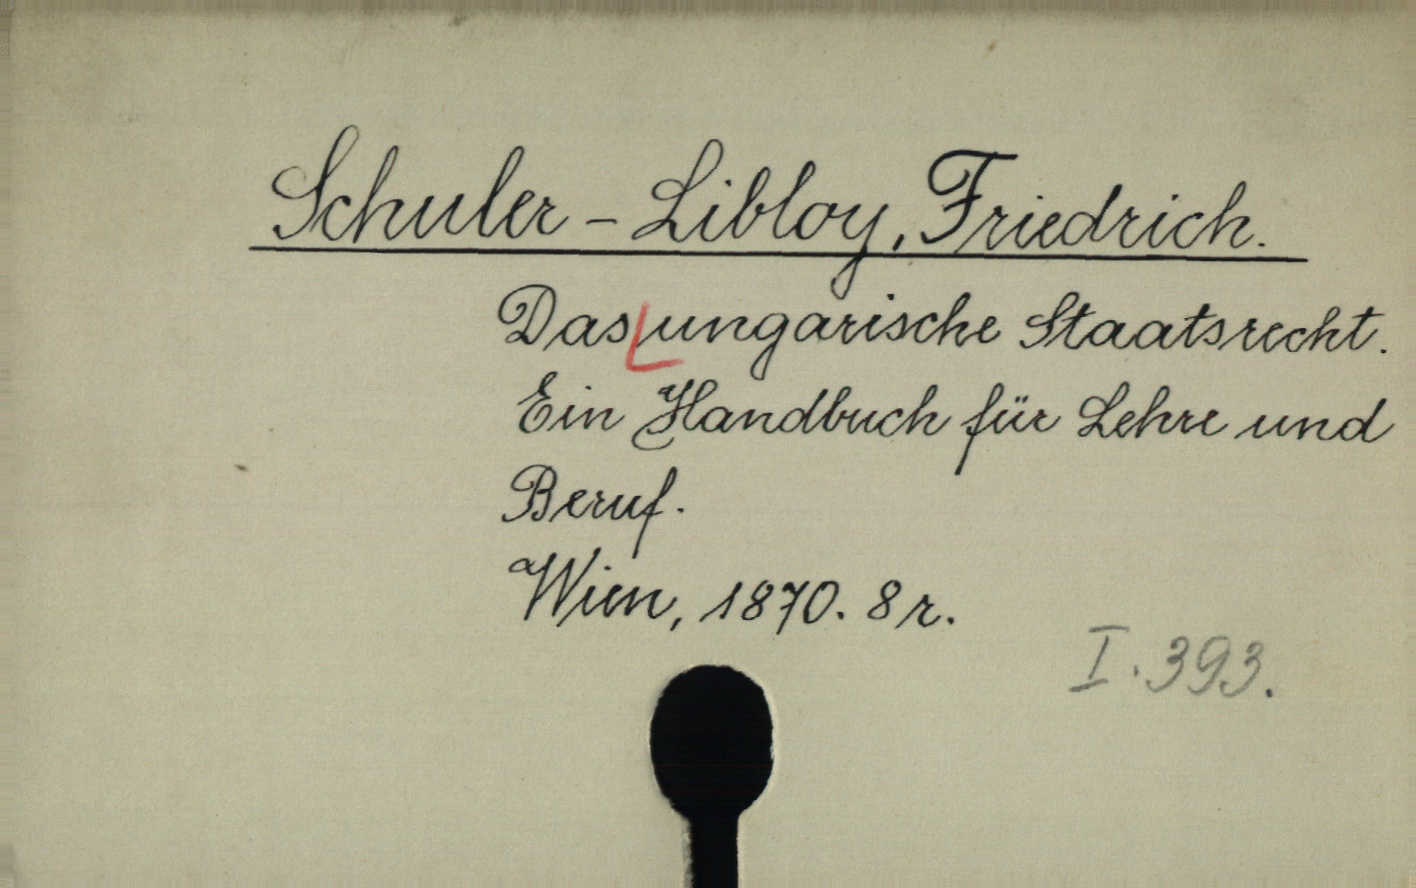 Schuler - Libloy, Friedrich.
Das ungarische Staatsrecht.
Ein Handbuch für Lehre und
Beruf.
Wien, 1870. 8 r.
I. 393.